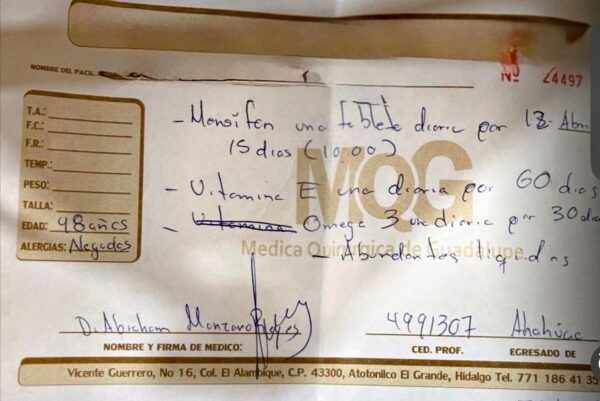 NOMBRE DEL PACIE
Nº 24497
T.A.:
F.C.:
F.R.:
TEMP.:
PESO:
TALLA:
EDAD: 48 años
ALERGIAS: Negadas
- Mensifen una tableta diaria por 12- Abri
15 dias (10:00)
- Vitamina E una diaria por 60 dias
- Vitamina Omega 3 una diaria por 30 dia
- Abundantes liquidos
MQG
Medica Quirurgica de Guadalupe
D. Abraham Manzano
NOMBRE Y FIRMA DE MEDICO:
4991307
CED. PROF.
EGRESADO DE
Vicente Guerrero, No 16, Col. El Alambique, C.P. 43300, Atotonilco El Grande, Hidalgo Tel. 771 186 41 35